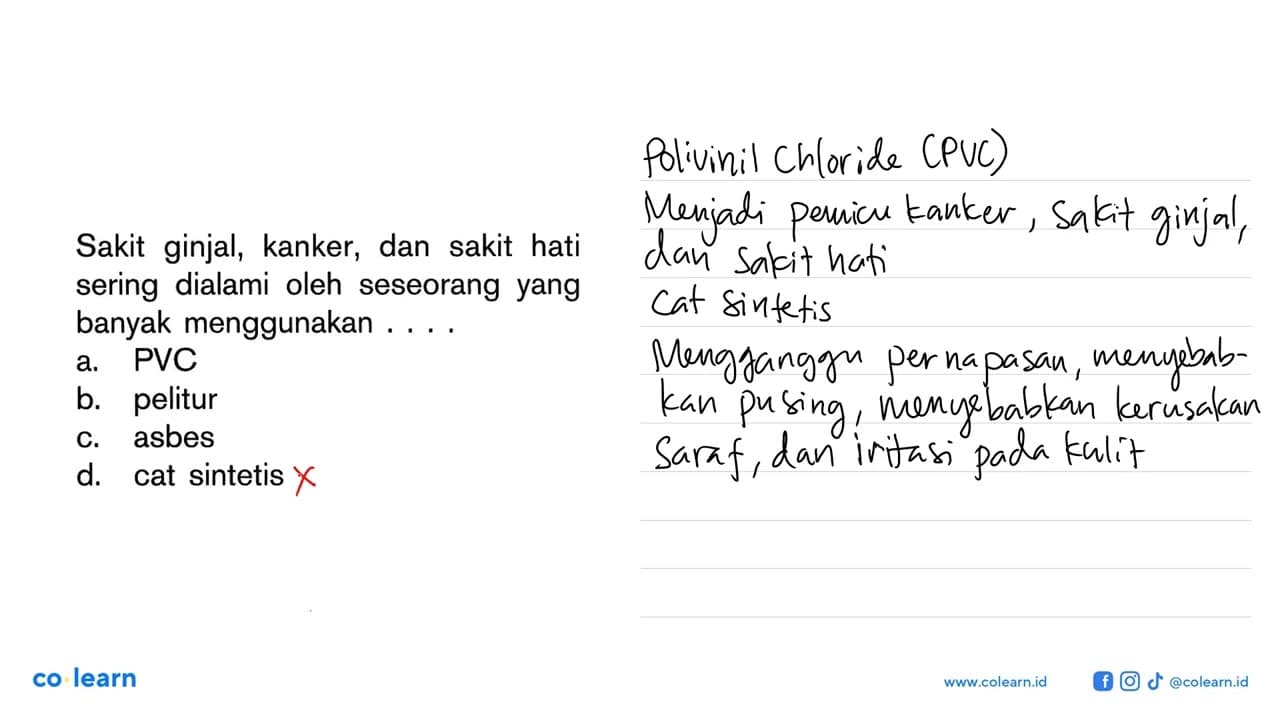 Sakit ginjal, kanker, dan sakit hati
sering dialami oleh seseorang yang
banyak menggunakan . . . .
a. PVC
b. pelitur
c. asbes
d. cat sintetis X
Polivinil Chloride (PVC)
Menjadi pemicu kanker, sakit ginjal,
dan sakit hati
Cat Sintetis
Mengganggu pernapasan, menyebab-
kan pusing, menyebabkan kerusakan
saraf, dan iritasi pada kulit
co learn
www.colearn.id
@colearn.id